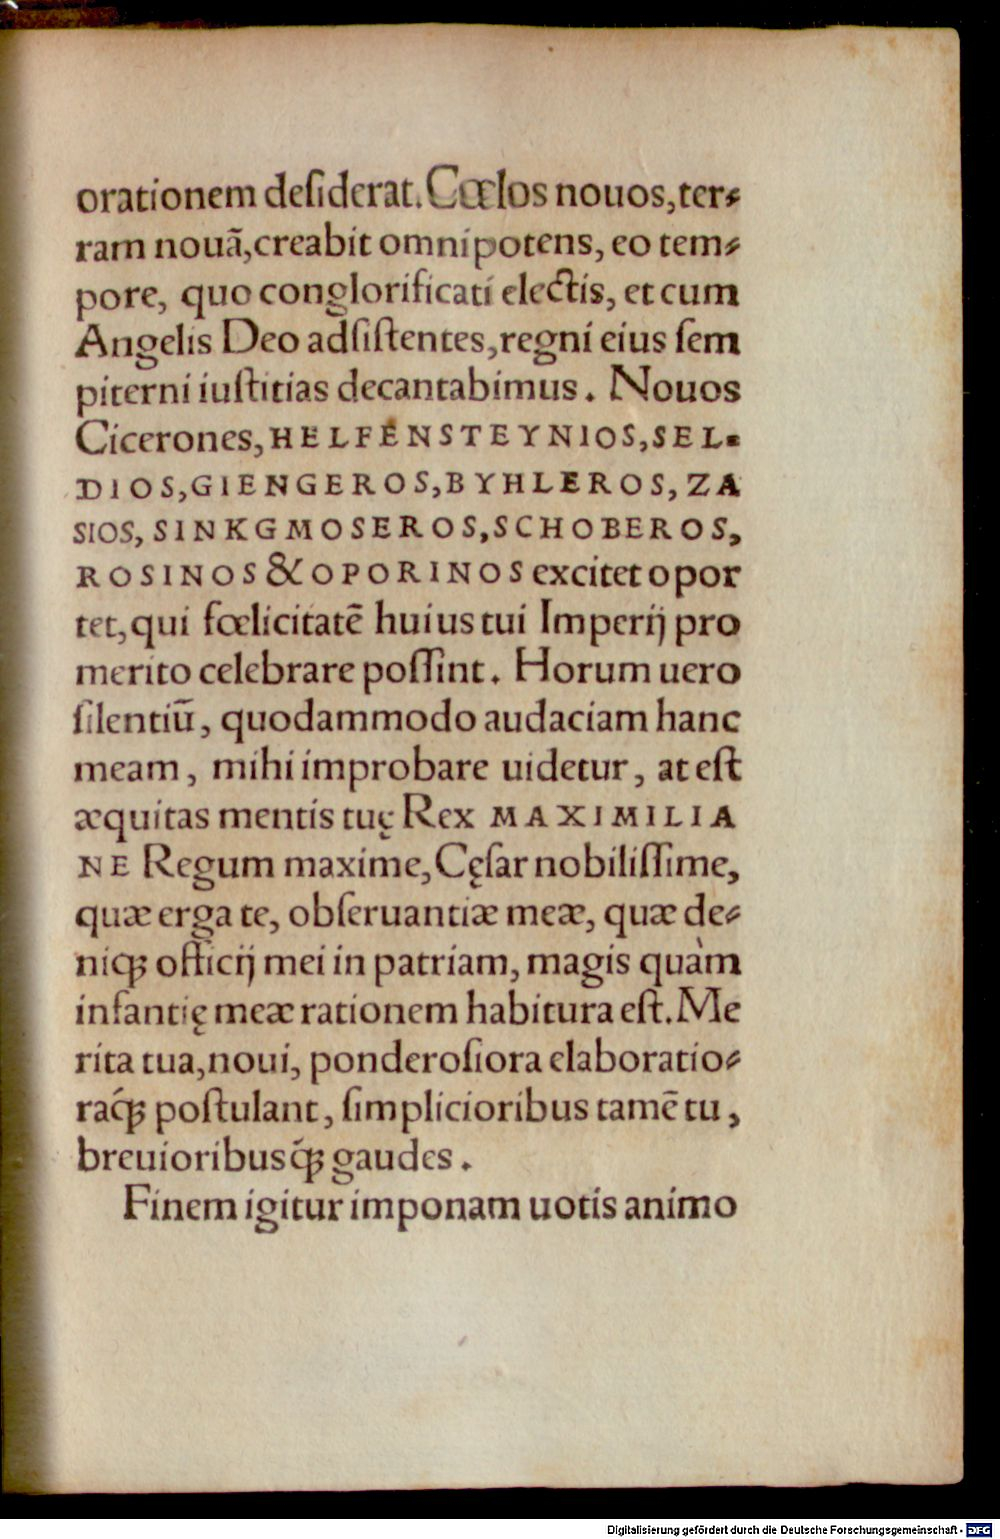 orationem deſiderat. Cœlos nouos, ter⸗
ram nouã, creabit omnipotens, eo tem⸗
pore, quo conglorificati electis, et cum
Angelis Deo adſiſtentes, regni eius ſem
piterni iuſtitias decantabimus. Nouos
Cicerones, HELFENSTEYNIOS, SEL⸗
DIOS, GIENGEROS, BYHLEROS, ZA
SIOS, SINKGMOSEROS, SCHOBEROS,
ROSINOS & OPORINOS excitet opor
tet, qui fœlicitatē huius tui Imperij pro
merito celebrare poſſint. Horum uero
ſilentiū, quodammodo audaciam hanc
meam, mihi improbare uidetur, at eſt
æquitas mentis tuę Rex MAXIMILIA
NE Regum maxime, Cęſar nobiliſſime,
quæ erga te, obſeruantiæ meæ, quæ de⸗
niqꝫ officij mei in patriam, magis quàm
infantię meæ rationem habitura eſt. Me
rita tua, noui, ponderoſiora elaboratio⸗
raq́ꝫ poſtulant, ſimplicioribus tamē tu,
breuioribusq́ꝫ gaudes.
Finem igitur imponam uotis animo
Digitalisierung gefördert durch die Deutsche Forschungsgemeinschaft - DFG